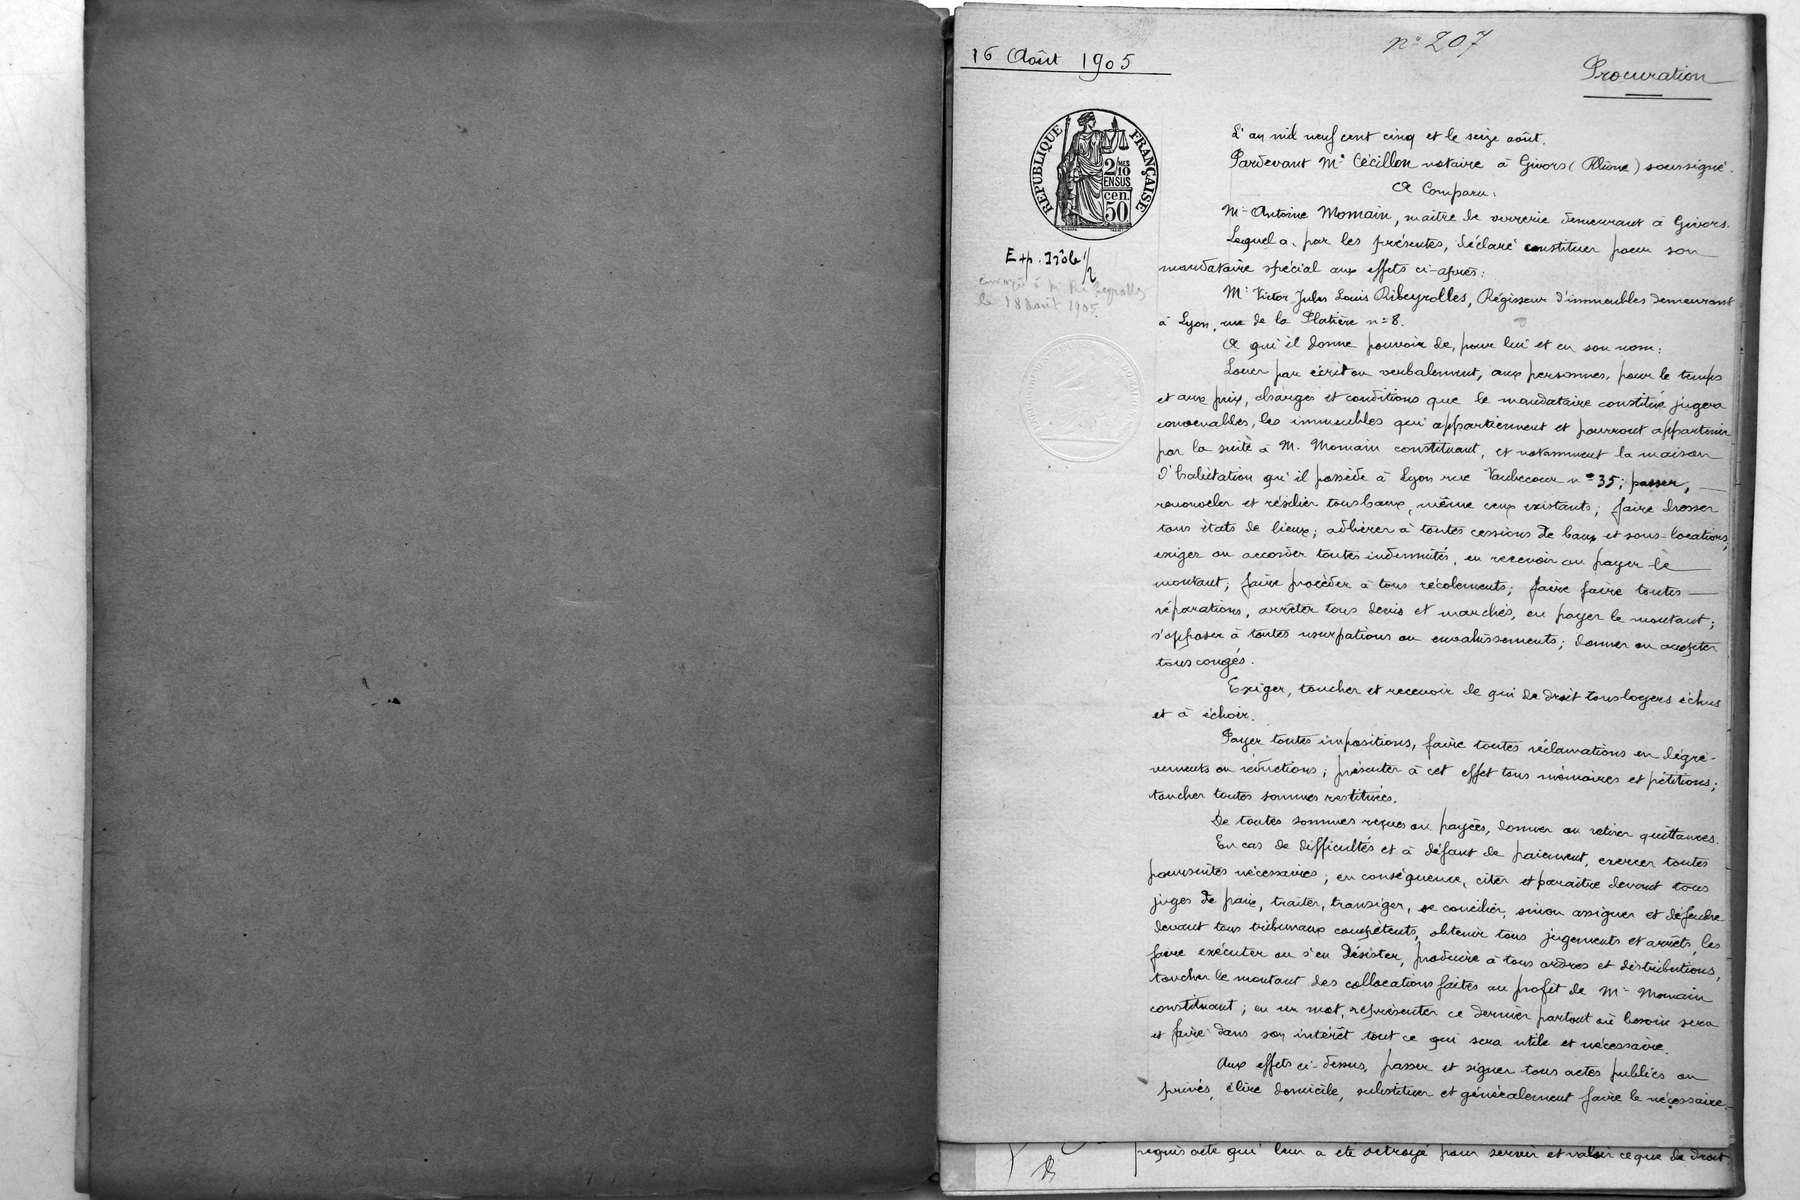 16 Août 1905
n° 207
Procuration
RÉPUBLIQUE FRANÇAISE
2/10
EN SUS
cen.
50
Exp. Isole
envoyée à M Ribeyrolles
le 18 août 1905
L'an mil neuf cent cinq et le seize août.
Pardevant Me Cécillon notaire à Givors (Rhône) soussigné.
A Comparu :
Mr Antoine Momain, maître de verrerie demeurant à Givors.
Lequel a, par les présentes, déclaré constituer pour son
mandataire spécial aux effets ci-après :
Mr Victor Jules Louis Ribeyrolles, Régisseur d'immeubles demeurant
à Lyon, rue de la Platière n° 8.
A qui il donne pouvoir de, pour lui et en son nom :
Louer par écrit ou verbalement, aux personnes, pour le temps
et aux prix, charges et conditions que le mandataire constitué jugera
convenables, les immeubles qui appartiennent et pourront appartenir
par la suite à M. Momain constituant, et notamment la maison
d'habitation qu'il possède à Lyon rue Vaubecour n° 35; passer,
renouveler et résilier tous baux, même ceux existants; faire dresser
tous états de lieux; adhérer à toutes cessions de baux et sous-locations,
exiger ou accorder toutes indemnités, en recevoir ou payer le
montant; faire procéder à tous récolements; faire faire toutes
réparations, arrêter tous devis et marchés, en payer le montant;
s'opposer à toutes usurpations ou envahissements; donner ou accepter
tous congés.
Exiger, toucher et recevoir de qui de droit tous loyers échus
et à échoir.
Payer toutes impositions, faire toutes réclamations en dégrè-
vements ou réductions; présenter à cet effet tous mémoires et pétitions;
toucher toutes sommes restituées.
De toutes sommes reçues ou payées, donner ou retirer quittances.
En cas de difficultés et à défaut de paiement, exercer toutes
poursuites nécessaires; en conséquence, citer et paraître devant tous
juges de paix, traiter, transiger, se concilier, sinon assigner et défendre
devant tous tribunaux compétents, obtenir tous jugements et arrêts, les
faire exécuter ou s'en désister, produire à tous ordres et distributions,
toucher le montant des collocations faites au profit de Mr Momain
constituant; en un mot, représenter ce dernier partout où besoin sera
et faire dans son intérêt tout ce qui sera utile et nécessaire.
Aux effets ci-dessus, passer et signer tous actes publics ou
privés, élire domicile, substituer et généralement faire le nécessaire.
requis acte qui leur a été octroyé pour servir et valoir ce que de droit